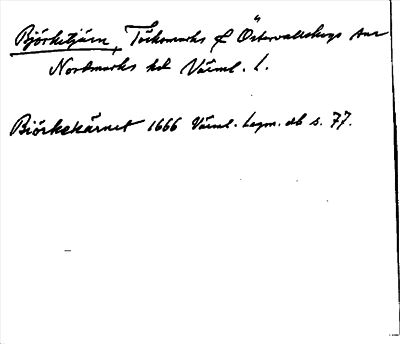 Björketjärn, Töcksmarks & Östervallskogs snr
Nordmarks hd Värml. l.
Biörkekärnet 1666 Värml. Lagm. db s. 77.